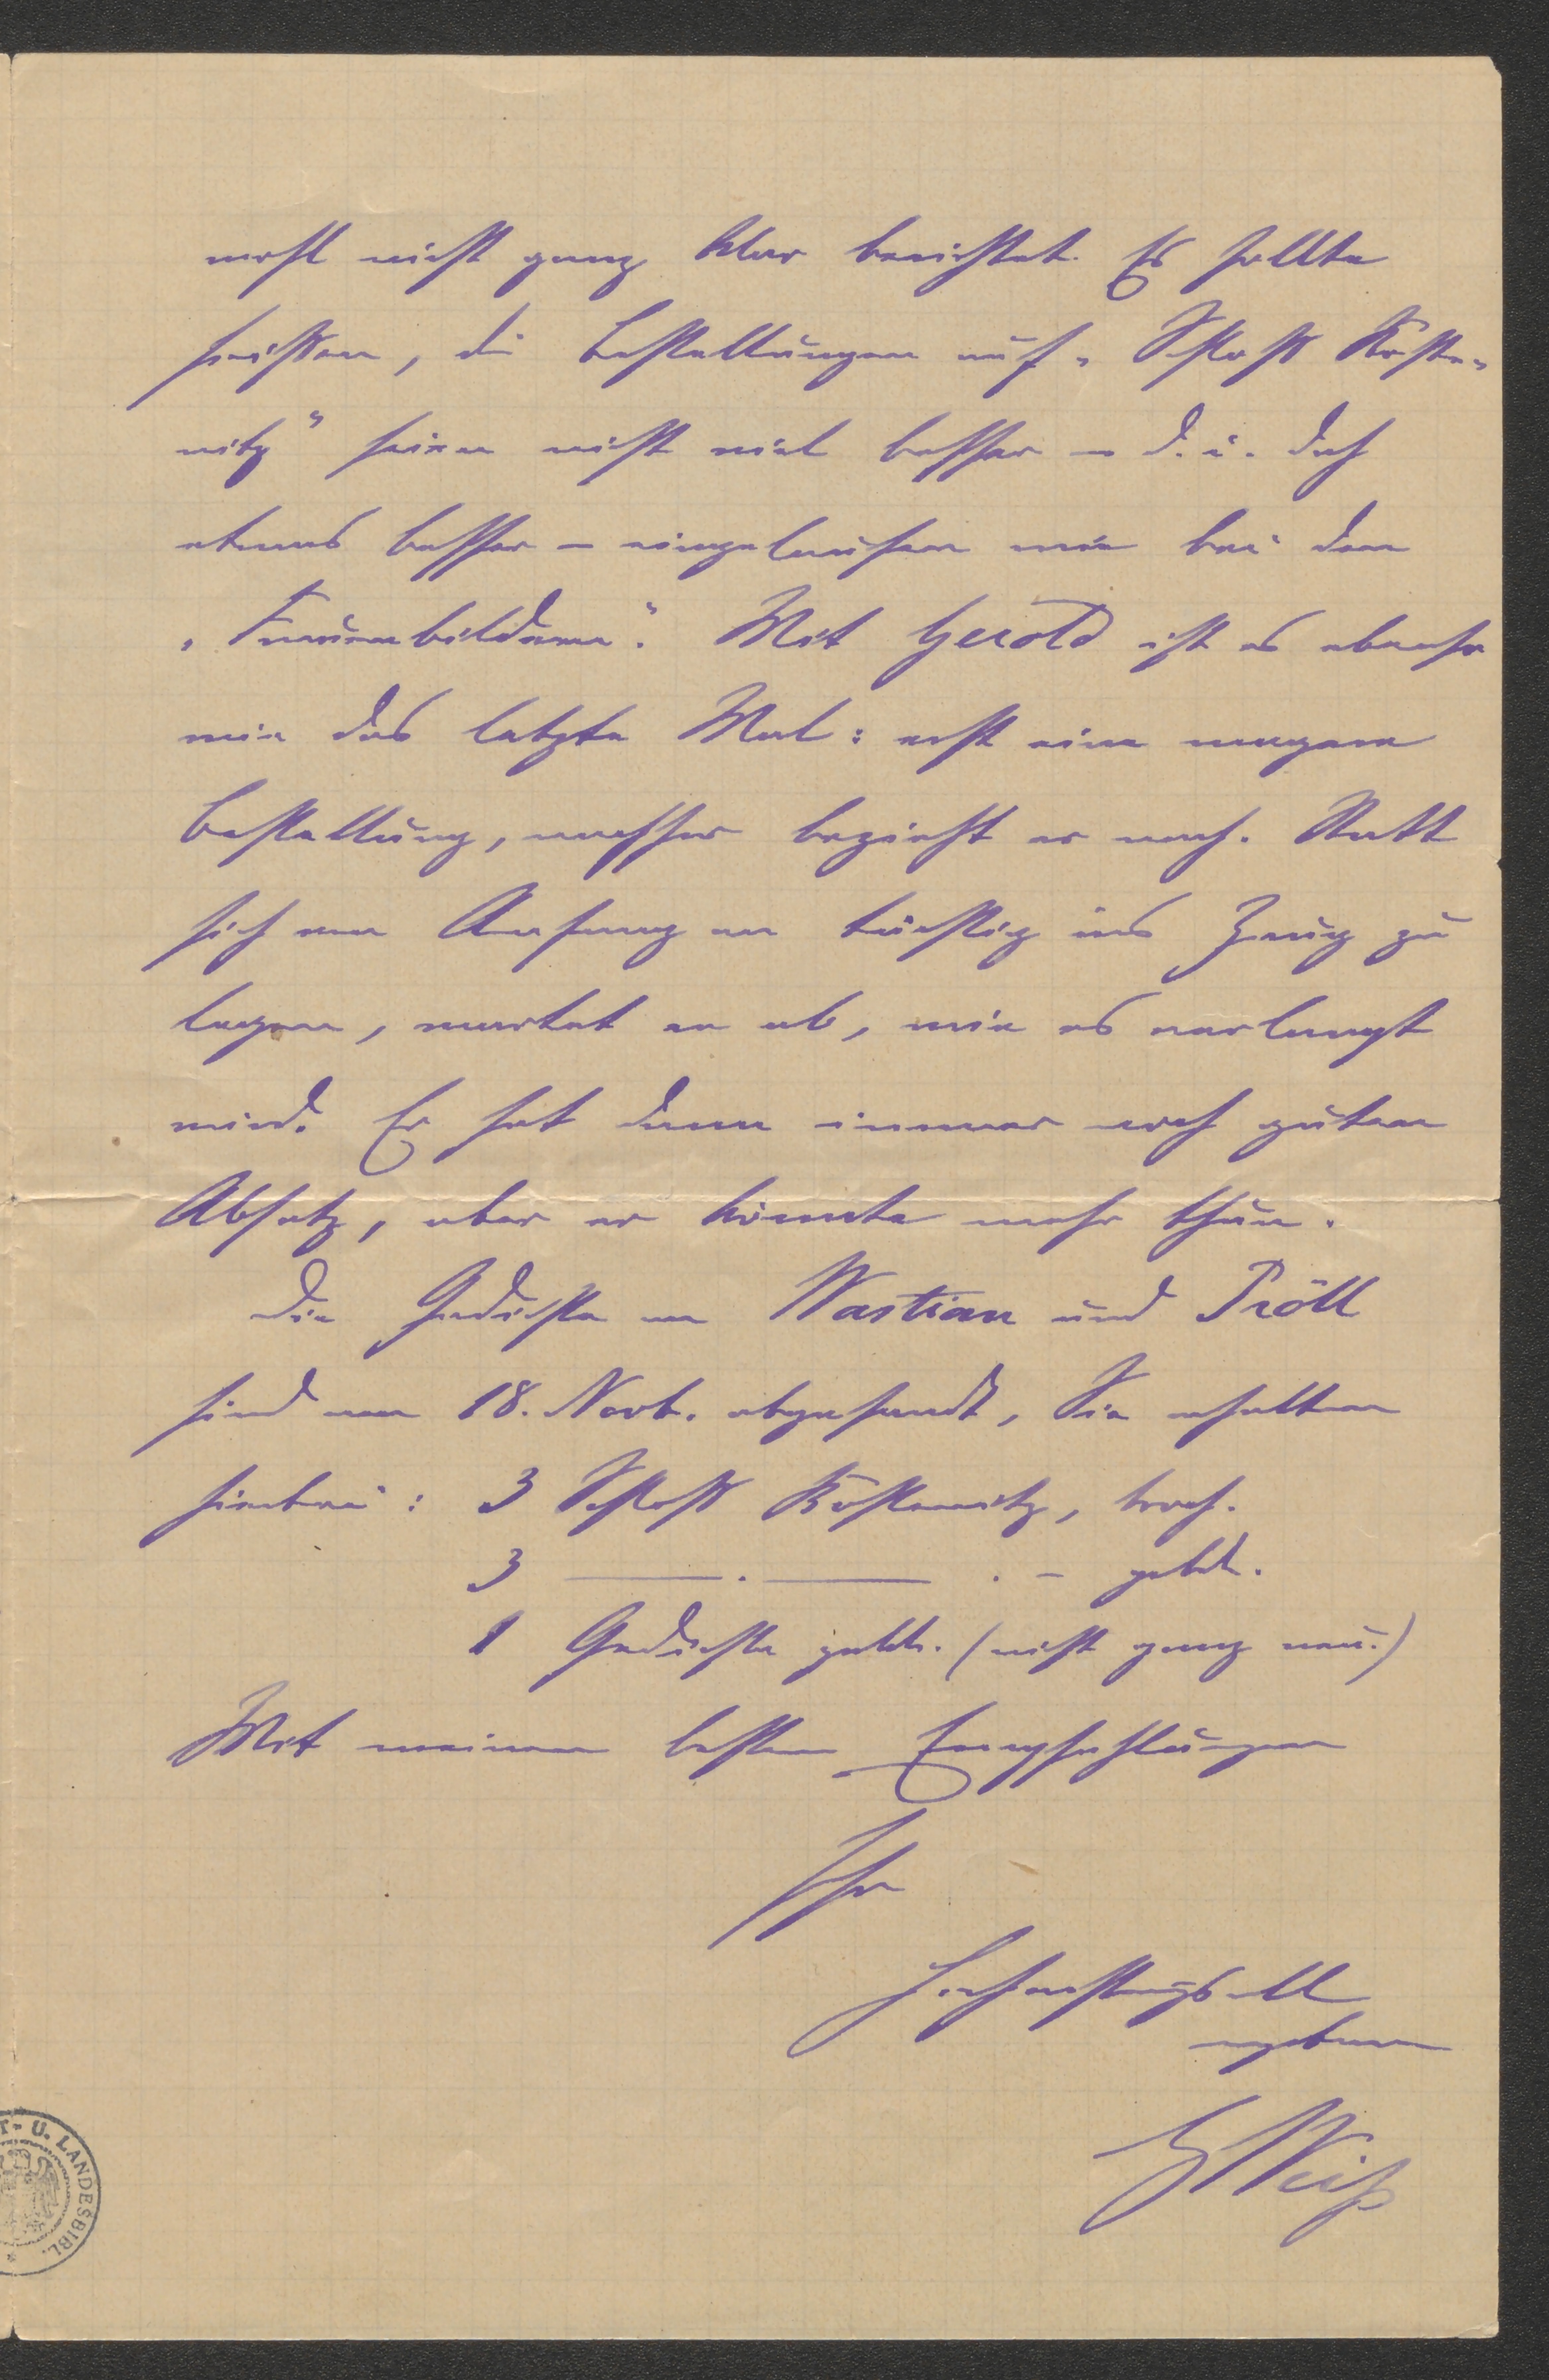 wohl nicht ganz klar berichtet. Es sollte
heißen, die Bestellungen auf „Schloß Koste-
nitz“ seien nicht viel besser – d. i. doch
etwas besser – eingelaufen wie bei den
„Frauenbildern“. Mit Gerold ist es ebenso
wie das letzte Mal: erst eine magere
Bestellung, nachher bezieht er nach. Statt
sich von Anfang an tüchtig ins Zeug zu
legen, wartet er ab, wie es verlangt
wird. Er hat dann immer noch guten
Absatz, aber er könnte mehr thun.
Die Gedichte an Wastian und Pröll
sind am 18. Novb. abgesandt, Sie erhalten
hierbei: 3 Schloß Kostenitz, broch.
3 —— . —— . – gebd.
1 Gedichte gebd. (nicht ganz neu.)
Mit meinen besten Empfehlungen
Ihr
hochachtungsvoll
ergebener
Weiß
U. LANDESBIBL.